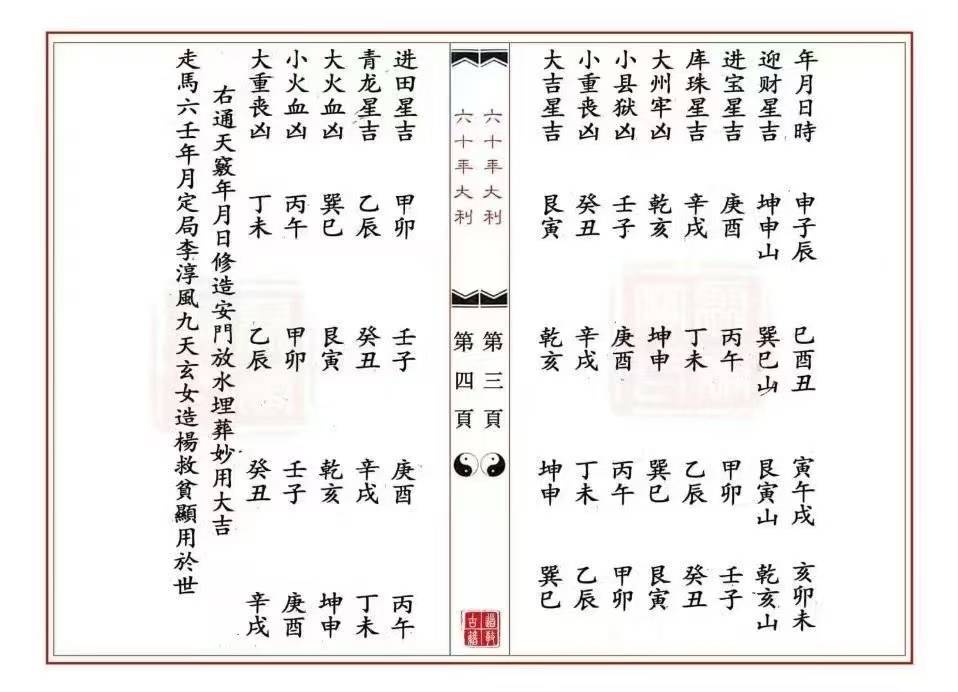 年月日時 申子辰 巳酉丑 寅午戌 亥卯未
迎财星吉 坤申山 巽巳山 艮寅山 乾亥山
进宝星吉 庚酉 丙午 甲卯 壬子
库珠星吉 辛戌 丁未 乙辰 癸丑
大州牢凶 乾亥 坤申 巽巳 艮寅
小县獄凶 壬子 庚酉 丙午 甲卯
小重丧凶 癸丑 辛戌 丁未 乙辰
大吉星吉 艮寅 乾亥 坤申 巽巳
六十年大利 第三頁
六十年大利 第四頁
进田星吉 甲卯 壬子 庚酉 丙午
青龙星吉 乙辰 癸丑 辛戌 丁未
大火血凶 巽巳 艮寅 乾亥 坤申
小火血凶 丙午 甲卯 壬子 庚酉
大重丧凶 丁未 乙辰 癸丑 辛戌
右通天竅年月日修造安門放水埋葬妙用大吉
走馬六壬年月定局李淳風九天玄女造楊救貧顯用於世